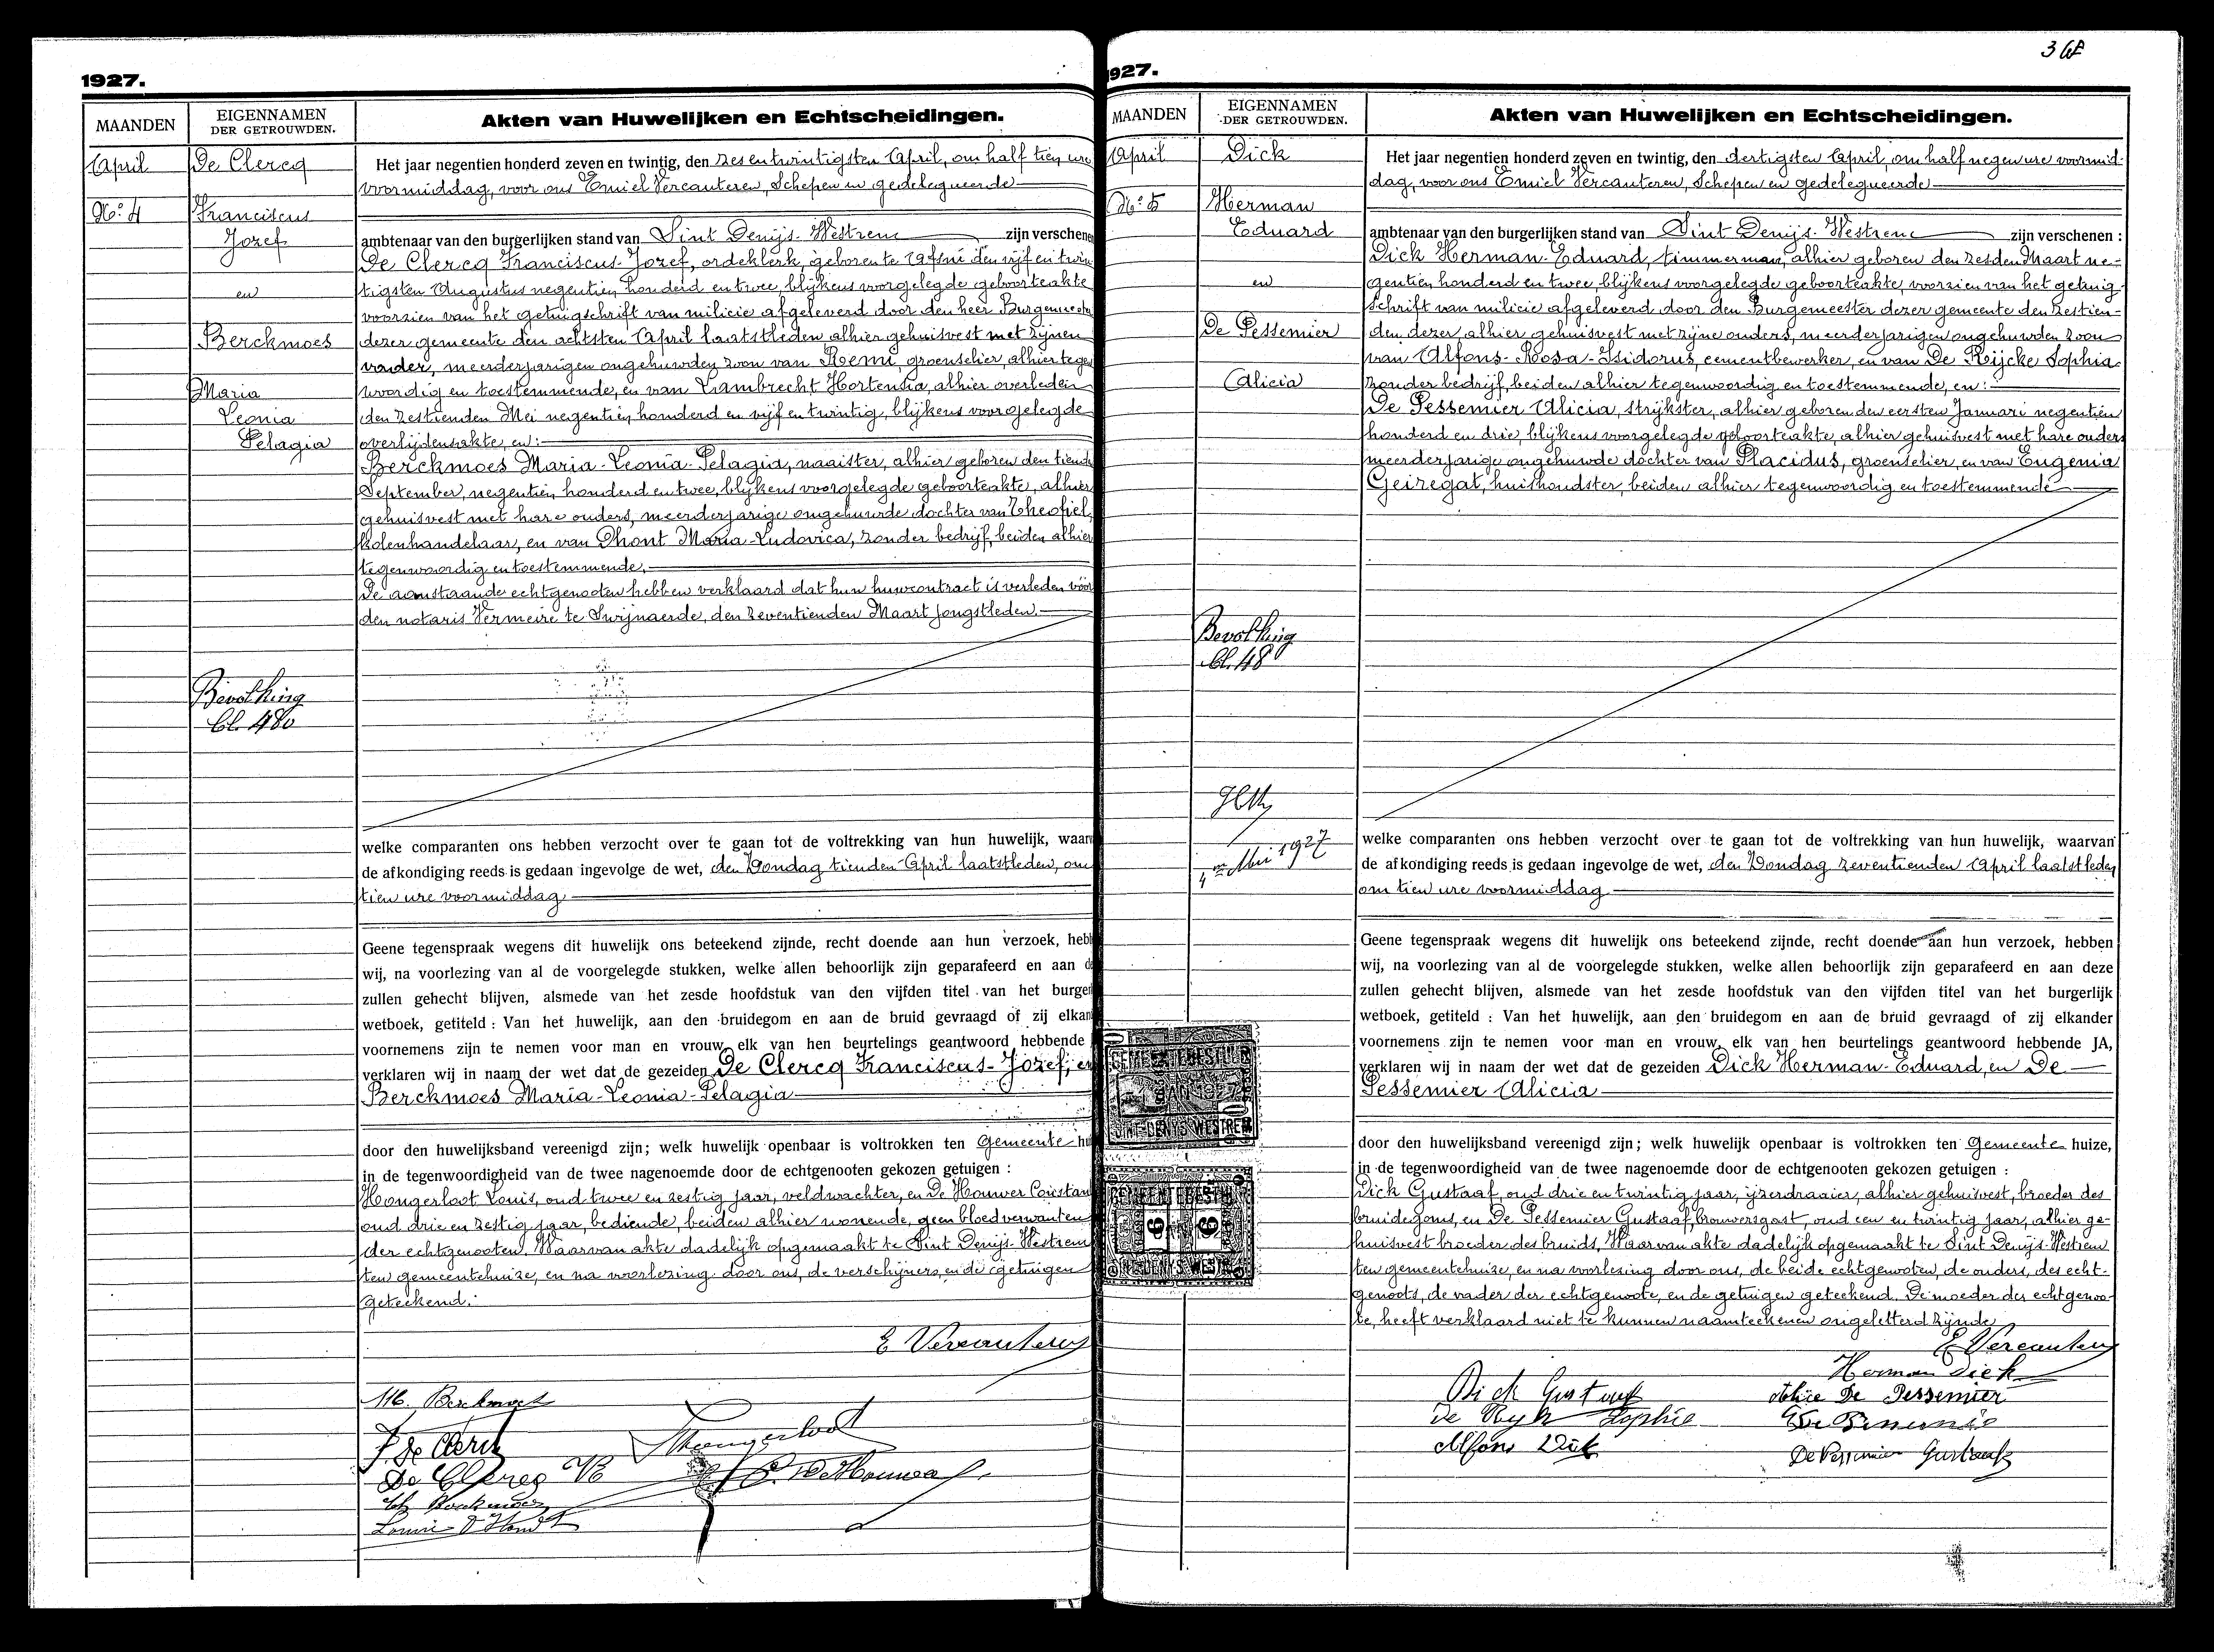 1927.
MAANDEN
EIGENNAMEN
DER GETROUWDEN.
Akten van Huwelijken en Echtscheidingen.
April
No. 4
De Clercq
Franciscus
Jozef
en
Berckmoes
Maria
Leonia
Pelagia
Bevolking
bl. 480
Het jaar negentien honderd zeven en twintig, den zes en twintigsten April, om half tien ure
voormiddag, voor ons Emiel Vercauteren, Schepen en gedelegueerde
ambtenaar van den burgerlijken stand van Sint Denijs-Westrem zijn verschenen
De Clercq Franciscus-Jozef, ordeklerk, geboren te Afsné den vijf en twin
tigsten Augustus negentien honderd en twee, blijkens voorgelegde geboorteakte
voorzien van het getuigschrift van milicie afgeleverd door den heer Burgemeester
dezer gemeente den achtsten April laatstleden, alhier gehuisvest met zijnen
vader, meerderjarigen ongehuwden zoon van Remi, groenselier, alhier tegen
woordig en toestemmende, en van Lambrecht Hortensia, alhier overleden
den zestienden Mei negentien honderd en vijf en twintig, blijkens voorgelegde
overlijdensakte, en:
Berckmoes Maria-Leonia-Pelagia, naaister, alhier geboren den tienden
September, negentien honderd en twee, blijkens voorgelegde geboorteakte, alhier
gehuisvest met hare ouders, meerderjarige ongehuwde dochter van Theofiel,
kolenhandelaar, en van Dhont Maria-Ludovica, zonder bedrijf, beiden alhier
tegenwoordig en toestemmende.
De aanstaande echtgenooten hebben verklaard dat hun huwcontract is verleden vóór
den notaris Vermeire te Swijnaerde, den zeventienden Maart jongstleden.
welke comparanten ons hebben verzocht over te gaan tot de voltrekking van hun huwelijk, waarv
de afkondiging reeds is gedaan ingevolge de wet, den Zondag tienden April laatstleden, om
tien ure voormiddag
Geene tegenspraak wegens dit huwelijk ons beteekend zijnde, recht doende aan hun verzoek, hebb
wij, na voorlezing van al de voorgelegde stukken, welke allen behoorlijk zijn geparafeerd en aan de
zullen gehecht blijven, alsmede van het zesde hoofdstuk van den vijfden titel van het burger
wetboek, getiteld : Van het huwelijk, aan den bruidegom en aan de bruid gevraagd of zij elkan
voornemens zijn te nemen voor man en vrouw, elk van hen beurtelings geantwoord hebbende
verklaren wij in naam der wet dat de gezeiden De Clercq Franciscus-Jozef, en
Berckmoes Maria-Leonia-Pelagia
door den huwelijksband vereenigd zijn; welk huwelijk openbaar is voltrokken ten Gemeente hui
in de tegenwoordigheid van de twee nagenoemde door de echtgenooten gekozen getuigen :
Hongerloot Louis, oud twee en zestig jaar, veldwachter, en De Houwer Constan
oud drie en zestig jaar, bediende, beiden alhier wonende, geen bloedverwanten
der echtgenooten. Waarvan akte dadelijk opgemaakt te Sint Denijs-Westrem
ten gemeentehuize, en na voorlezing door ons, de verschijners, en de getuigen
geteekend.
E Vercauteren
M. Berckmoes
F. De Clercq
Hongerloot
De Clercq R
C. De Houwer
Th Berckmoes
Louise D'Hondt
1927.
368
MAANDEN
EIGENNAMEN
DER GETROUWDEN.
Akten van Huwelijken en Echtscheidingen.
April
No. 5
Dick
Herman
Eduard
en
De Pessemier
Alicia
Bevolking
bl. 48
Mei 1927
GEMEENTEBESTUUR
SINT-DENYS WESTREM
Het jaar negentien honderd zeven en twintig, den dertigsten April, om half negen ure voormid-
dag, voor ons Emiel Vercauteren, Schepen en gedelegueerde
ambtenaar van den burgerlijken stand van Sint Denijs-Westrem zijn verschenen :
Dick Herman-Eduard, timmerman, alhier geboren den zesden Maart ne-
gentien honderd en twee, blijkens voorgelegde geboorteakte, voorzien van het getuig-
schrift van milicie afgeleverd door den Burgemeester dezer gemeente den zestien-
den dezer, alhier gehuisvest met zijne ouders, meerderjarigen ongehuwden zoon
van Alfons-Rosa-Isidorus, cementbewerker, en van De Rijcke Sophia
zonder bedrijf, beiden alhier tegenwoordig en toestemmende, en:
De Pessemier Alicia, strijkster, alhier geboren den eersten Januari negentien
honderd en drie, blijkens voorgelegde geboorteakte, alhier gehuisvest met hare ouders
meerderjarige ongehuwde dochter van Placidus, groenselier, en van Eugenia
Geiregat, huishoudster, beiden alhier tegenwoordig en toestemmende
welke comparanten ons hebben verzocht over te gaan tot de voltrekking van hun huwelijk, waarvan
de afkondiging reeds is gedaan ingevolge de wet, den Zondag zeventienden April laatstleden
om tien ure voormiddag
Geene tegenspraak wegens dit huwelijk ons beteekend zijnde, recht doende aan hun verzoek, hebben
wij, na voorlezing van al de voorgelegde stukken, welke allen behoorlijk zijn geparafeerd en aan deze
zullen gehecht blijven, alsmede van het zesde hoofdstuk van den vijfden titel van het burgerlijk
wetboek, getiteld : Van het huwelijk, aan den bruidegom en aan de bruid gevraagd of zij elkander
voornemens zijn te nemen voor man en vrouw, elk van hen beurtelings geantwoord hebbende JA,
verklaren wij in naam der wet dat de gezeiden Dick Herman-Eduard, en De
Pessemier Alicia
door den huwelijksband vereenigd zijn; welk huwelijk openbaar is voltrokken ten Gemeente huize,
in de tegenwoordigheid van de twee nagenoemde door de echtgenooten gekozen getuigen :
Dick Gustaaf, oud drie en twintig jaar, ijzerdraaier, alhier gehuisvest, broeder des
bruidegoms, en De Pessemier Gustaaf, brouwersgast, oud een en twintig jaar, alhier ge-
huisvest broeder des bruids. Waarvan akte dadelijk opgemaakt te Sint Denijs-Westrem
ten gemeentehuize, en na voorlezing door ons, de beide echtgenooten, de ouders, des echt-
genoots, de vader der echtgenoote, en de getuigen geteekend. De moeder der echtgenoo-
te, heeft verklaard niet te kunnen naamteekenen ongeletterd zijnde
E Vercauteren
Herman Dick
Dick Gustaaf
Alice De Pessemier
De Ryk Sophie
Alfons Dick
De Pessemier Gustaaf